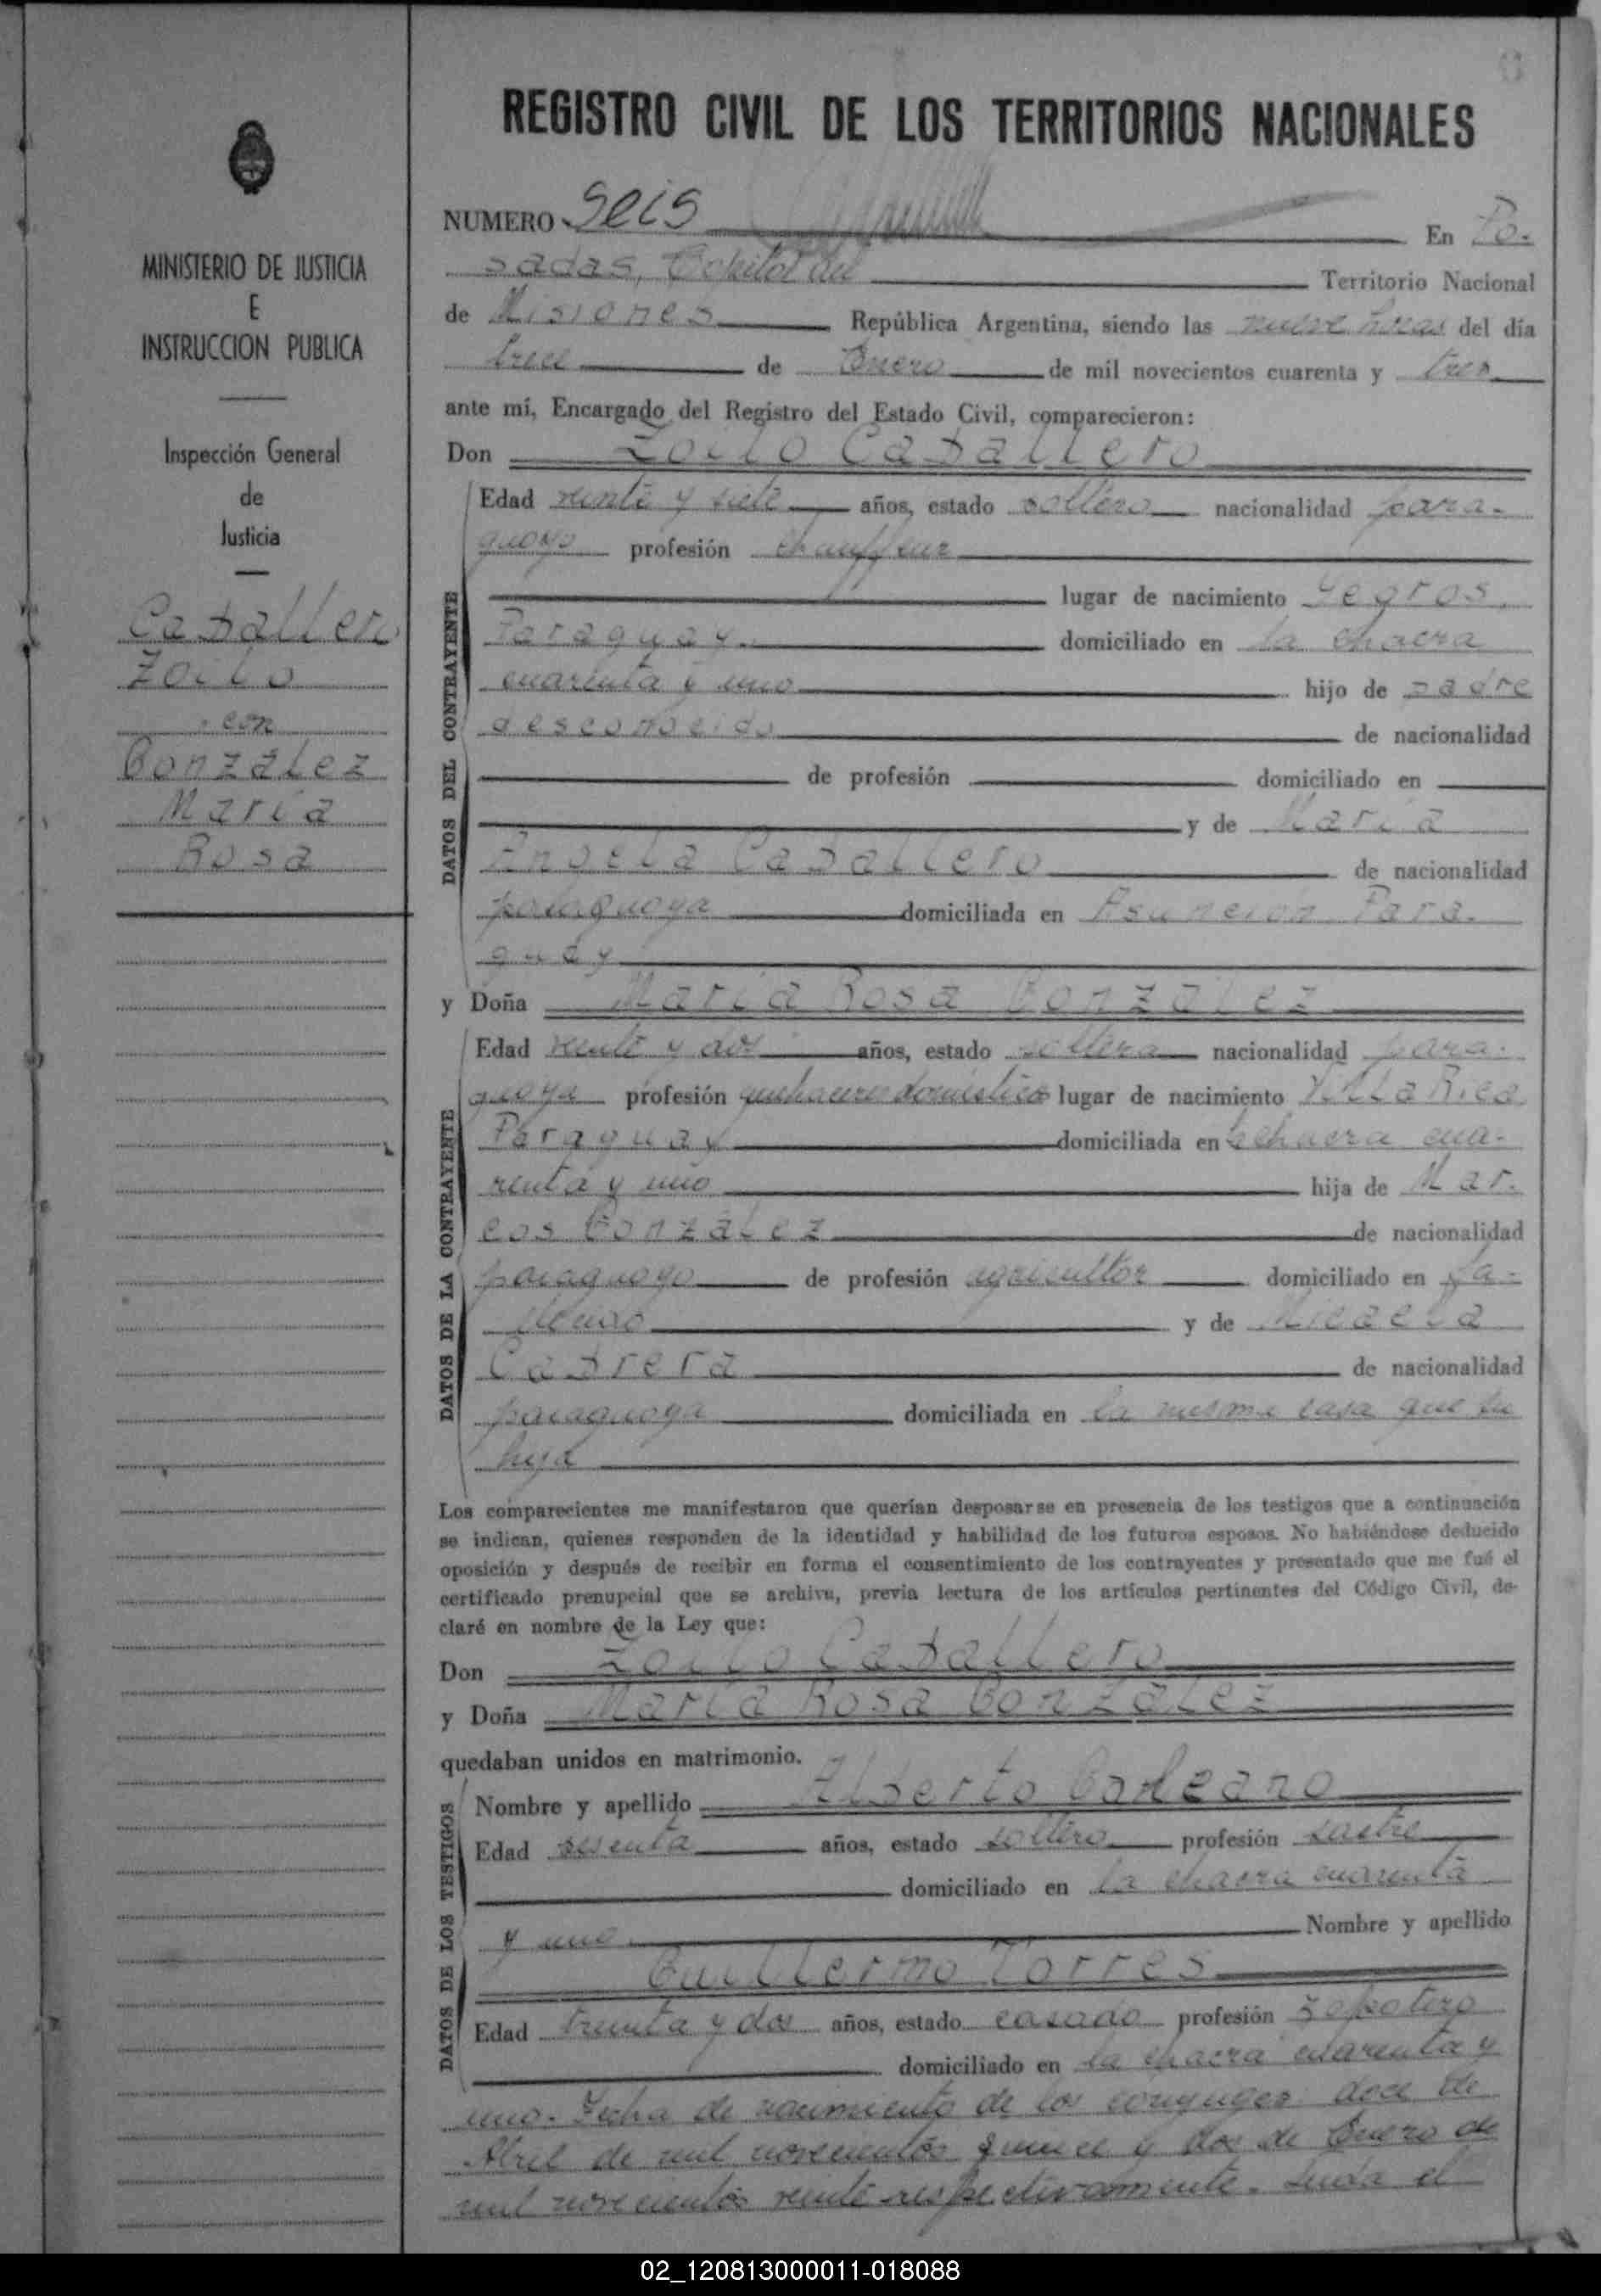 REGISTRO CIVIL DE LOS TERRITORIOS NACIONALES
MINISTERIO DE JUSTICIA
E
INSTRUCCION PUBLICA
Inspección General
de
Justicia
Caballero
Zoilo
con
González
María
Rosa
NUMERO Seis En Po-
sadas, Capital del Territorio Nacional
de Misiones República Argentina, siendo las nueve horas del día
trece de Enero de mil novecientos cuarenta y tres
ante mí, Encargado del Registro del Estado Civil, comparecieron:
Don Zoilo Caballero
DATOS DEL CONTRAYENTE
Edad veinte y siete años, estado soltero nacionalidad para-
guayo profesión chauffeur
lugar de nacimiento Yegros,
Paraguay. domiciliado en la chacra
cuarenta y uno hijo de padre
desconocido de nacionalidad
de profesión domiciliado en
y de María
Angela Caballero de nacionalidad
paraguaya domiciliada en Asunción Para-
guay
y Doña María Rosa González
DATOS DE LA CONTRAYENTE
Edad veinte y dos años, estado soltera nacionalidad para-
guaya profesión quehaceres domésticos lugar de nacimiento Villa Rica
Paraguay domiciliada en la chacra cua-
renta y uno hija de Mar-
cos González de nacionalidad
paraguayo de profesión agricultor domiciliado en
y de Micaela
Cabrera de nacionalidad
paraguaya domiciliada en la misma casa que su
hija
Los comparecientes me manifestaron que querían desposarse en presencia de los testigos que a continuación
se indican, quienes responden de la identidad y habilidad de los futuros esposos. No habiéndose deducido
oposición y después de recibir en forma el consentimiento de los contrayentes y presentado que me fué el
certificado prenupcial que se archiva, previa lectura de los artículos pertinentes del Código Civil, de-
claré en nombre de la Ley que:
Don Zoilo Caballero
y Doña María Rosa González
quedaban unidos en matrimonio.
DATOS DE LOS TESTIGOS
Nombre y apellido Alberto
Edad sesenta años, estado soltero profesión sastre
domiciliado en la chacra cuarenta
y uno Nombre y apellido
Guillermo Torres
Edad treinta y dos años, estado casado profesión zapatero
domiciliado en la chacra cuarenta y
uno. Fecha de nacimiento de los conyuges: doce de
Abril de mil novecientos quince y dos de Enero de
mil novecientos veinte respectivamente. Leida el
02_120813000011-018088